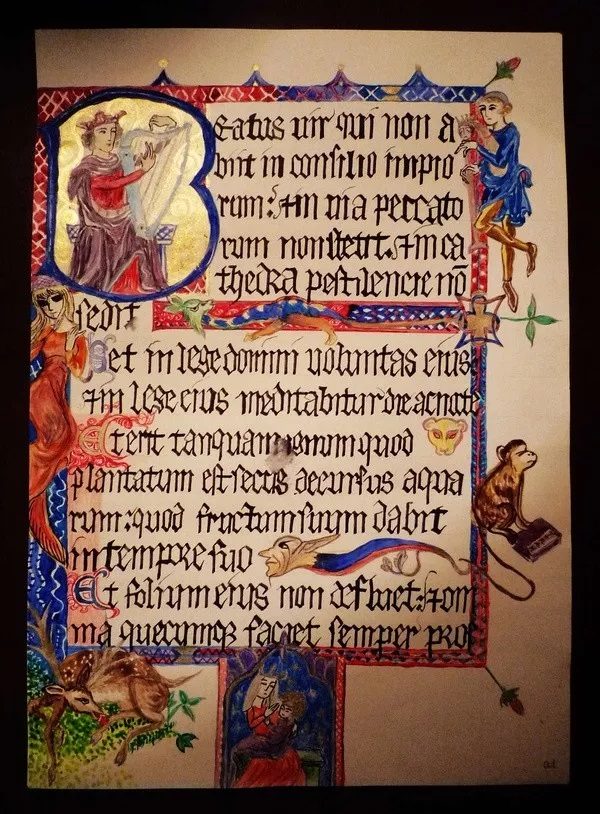 Beatus vir qui non a
biit in consilio impio
rum: & in via peccato
rum non stetit. & in ca
thedra pestilencie nō
sedit
Set in lege domini voluntas eius:
& in lege eius meditabitur die ac nocte
Et erit tanquam lignum quod
plantatum est secus decursus aqua
rum: quod fructum suum dabit
in tempre suo
Et folium eius non defluet: & om
nia quecumq faciet semper pros